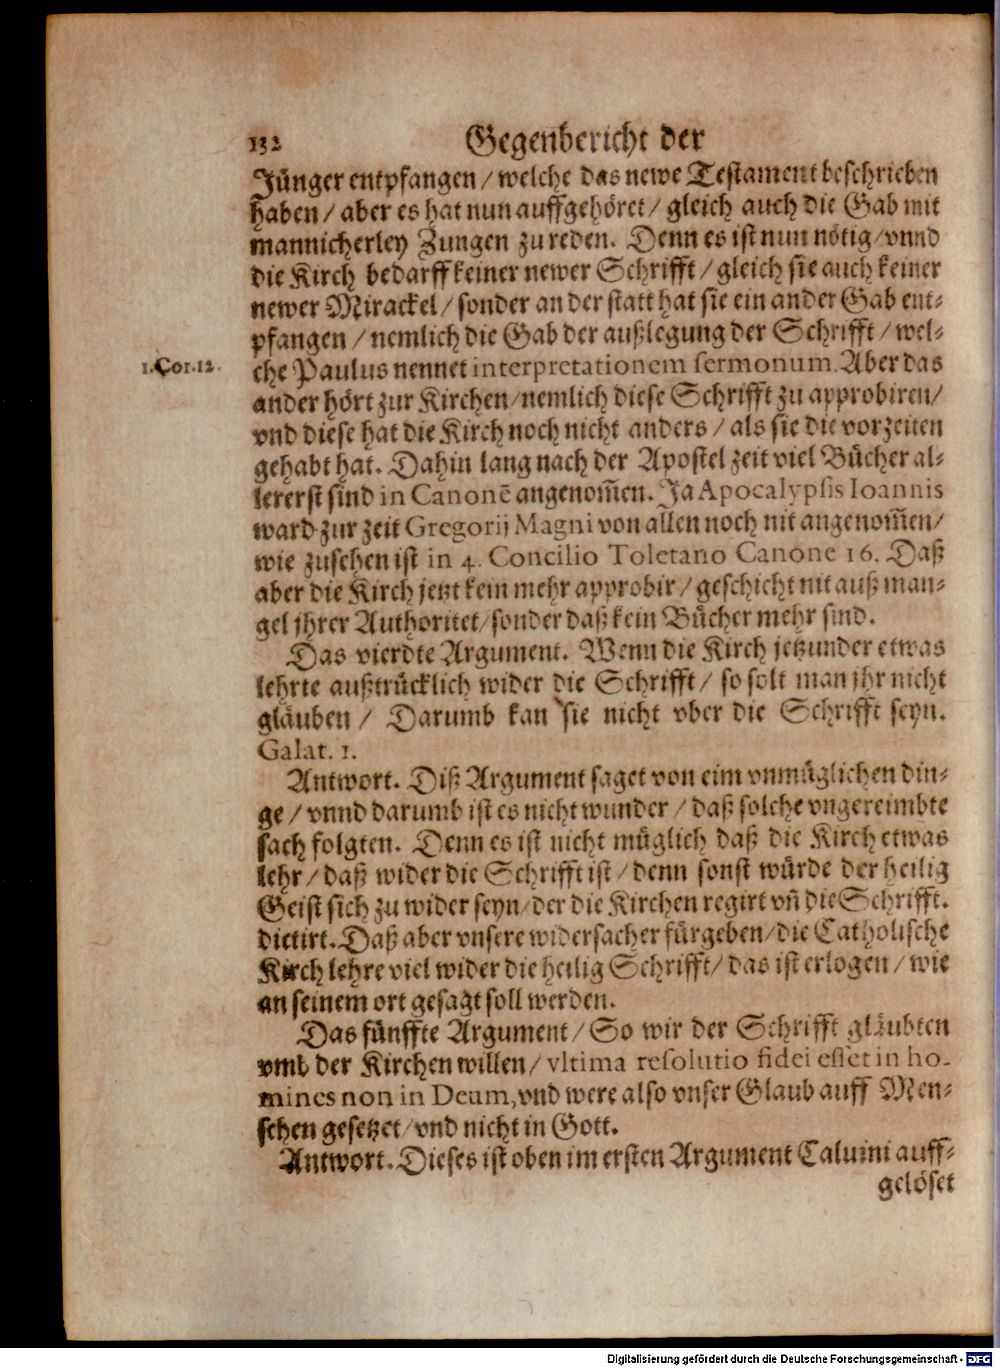 132 Gegenbericht der
Jünger entpfangen / welche das newe Testament beschrieben
haben / aber es hat nun auffgehöret / gleich auch die Gab mit
mannicherley Zungen zu reden. Denn es ist nun nötig / vnnd
die Kirch bedarff keiner newer Schrifft / gleich sie auch keiner
newer Mirackel / sonder an der statt hat sie ein ander Gab ent-
pfangen / nemlich die Gab der außlegung der Schrifft / wel-
1. Cor. 12.
che Paulus nennet interpretationem sermonum. Aber das
ander hört zur Kirchen / nemlich diese Schrifft zu approbiren /
vnd diese hat die Kirch noch nicht anders / als sie die vorzeiten
gehabt hat. Dahin lang nach der Apostel zeit viel Bücher al-
lererst sind in Canonē angenom̃en. Ja Apocalypsis Ioannis
ward zur zeit Gregorij Magni von allen noch nit angenom̃en /
wie zusehen ist in 4. Concilio Toletano Canone 16. Daß
aber die Kirch jetzt kein mehr approbir / geschicht nit auß man-
gel jhrer Authoritet / sonder daß kein Bücher mehr sind.
Das vierdte Argument. Wenn die Kirch jetzunder etwas
lehrte außtrücklich wider die Schrifft / so solt man jhr nicht
gläuben / Darumb kan sie nicht vber die Schrifft seyn.
Galat. 1.
Antwort. Diß Argument saget von eim vnmüglichen din-
ge / vnnd darumb ist es nicht wunder / daß solche vngereimbte
sach folgten. Denn es ist nicht müglich daß die Kirch etwas
lehr / daß wider die Schrifft ist / denn sonst würde der heilig
Geist sich zu wider seyn / der die Kirchen regirt vn̄ die Schrifft.
dictirt. Daß aber vnsere widersacher fürgeben / die Catholische
Kirch lehre viel wider die heilig Schrifft / das ist erlogen / wie
an seinem ort gesagt soll werden.
Das fünffte Argument / So wir der Schrifft gläubten
vmb der Kirchen willen / vltima resolutio fidei esset in ho-
mines non in Deum, vnd were also vnser Glaub auff Men-
schen gesetzet / vnd nicht in Gott.
Antwort. Dieses ist oben im ersten Argument Caluini auff-
gelöset
Digitalisierung gefördert durch die Deutsche Forschungsgemeinschaft - DFG